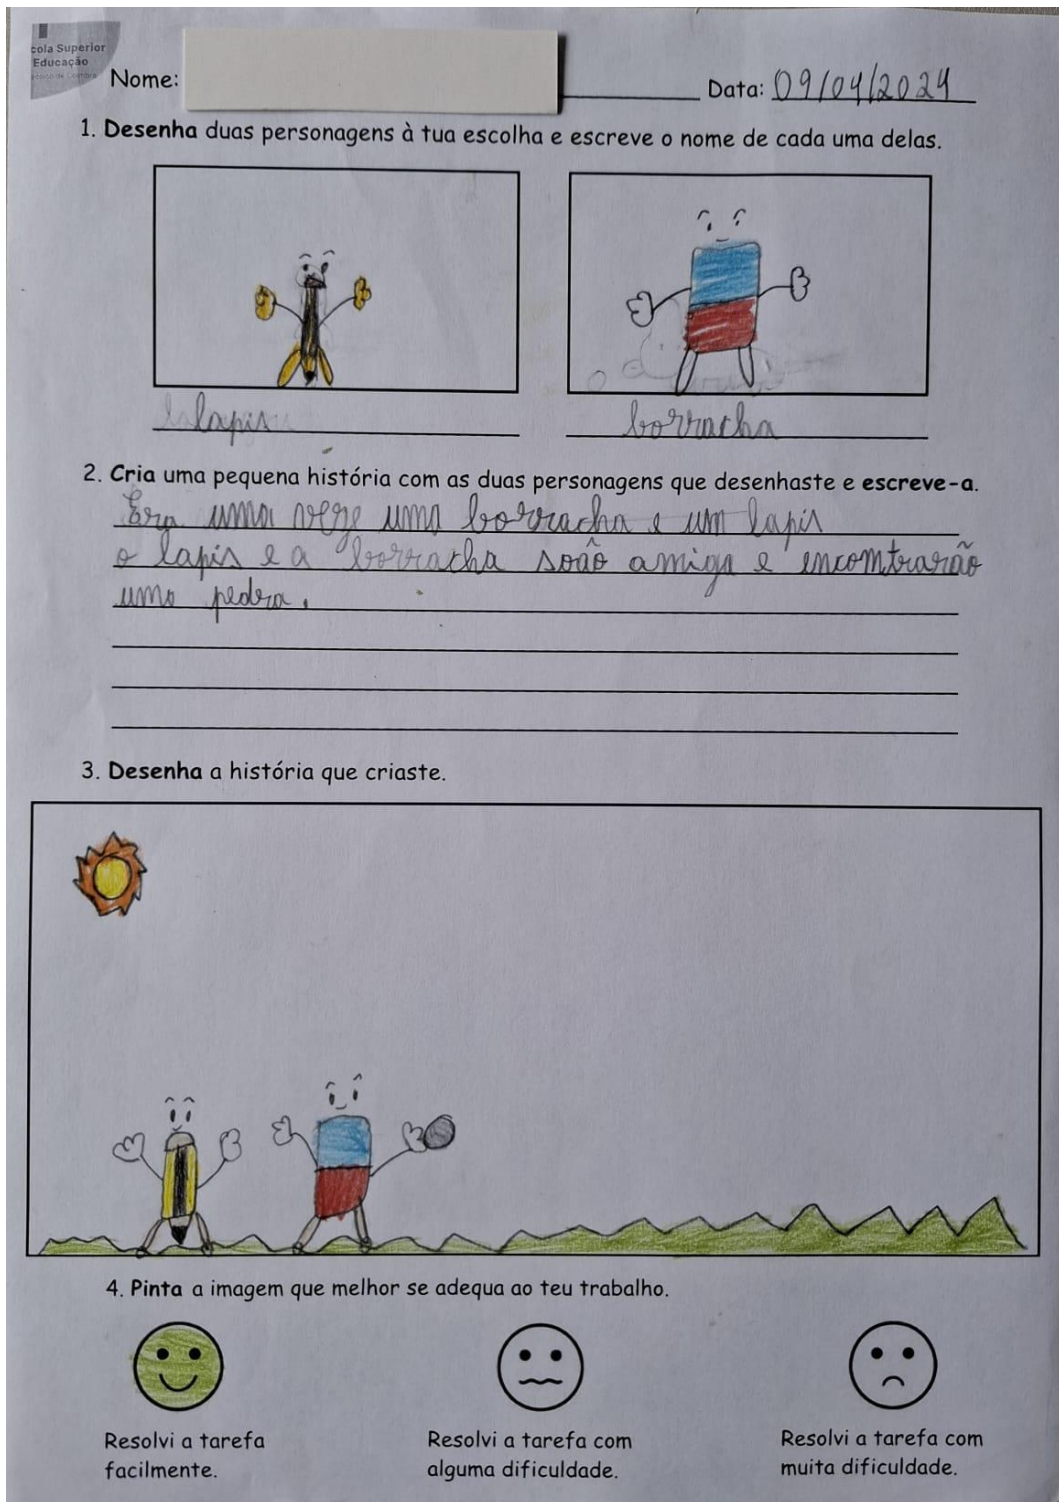 cola Superior
Educação
Nome:
Data: 09/04/2024
1. Desenha duas personagens à tua escolha e escreve o nome de cada uma delas.
lapis
borracha
2. Cria uma pequena história com as duas personagens que desenhaste e escreve-a.
Era uma veze uma borracha e um lapis
o lapis e a borracha soão amiga e encomtrarão
uma pedra.
3. Desenha a história que criaste.
4. Pinta a imagem que melhor se adequa ao teu trabalho.
Resolvi a tarefa
facilmente.
Resolvi a tarefa com
alguma dificuldade.
Resolvi a tarefa com
muita dificuldade.